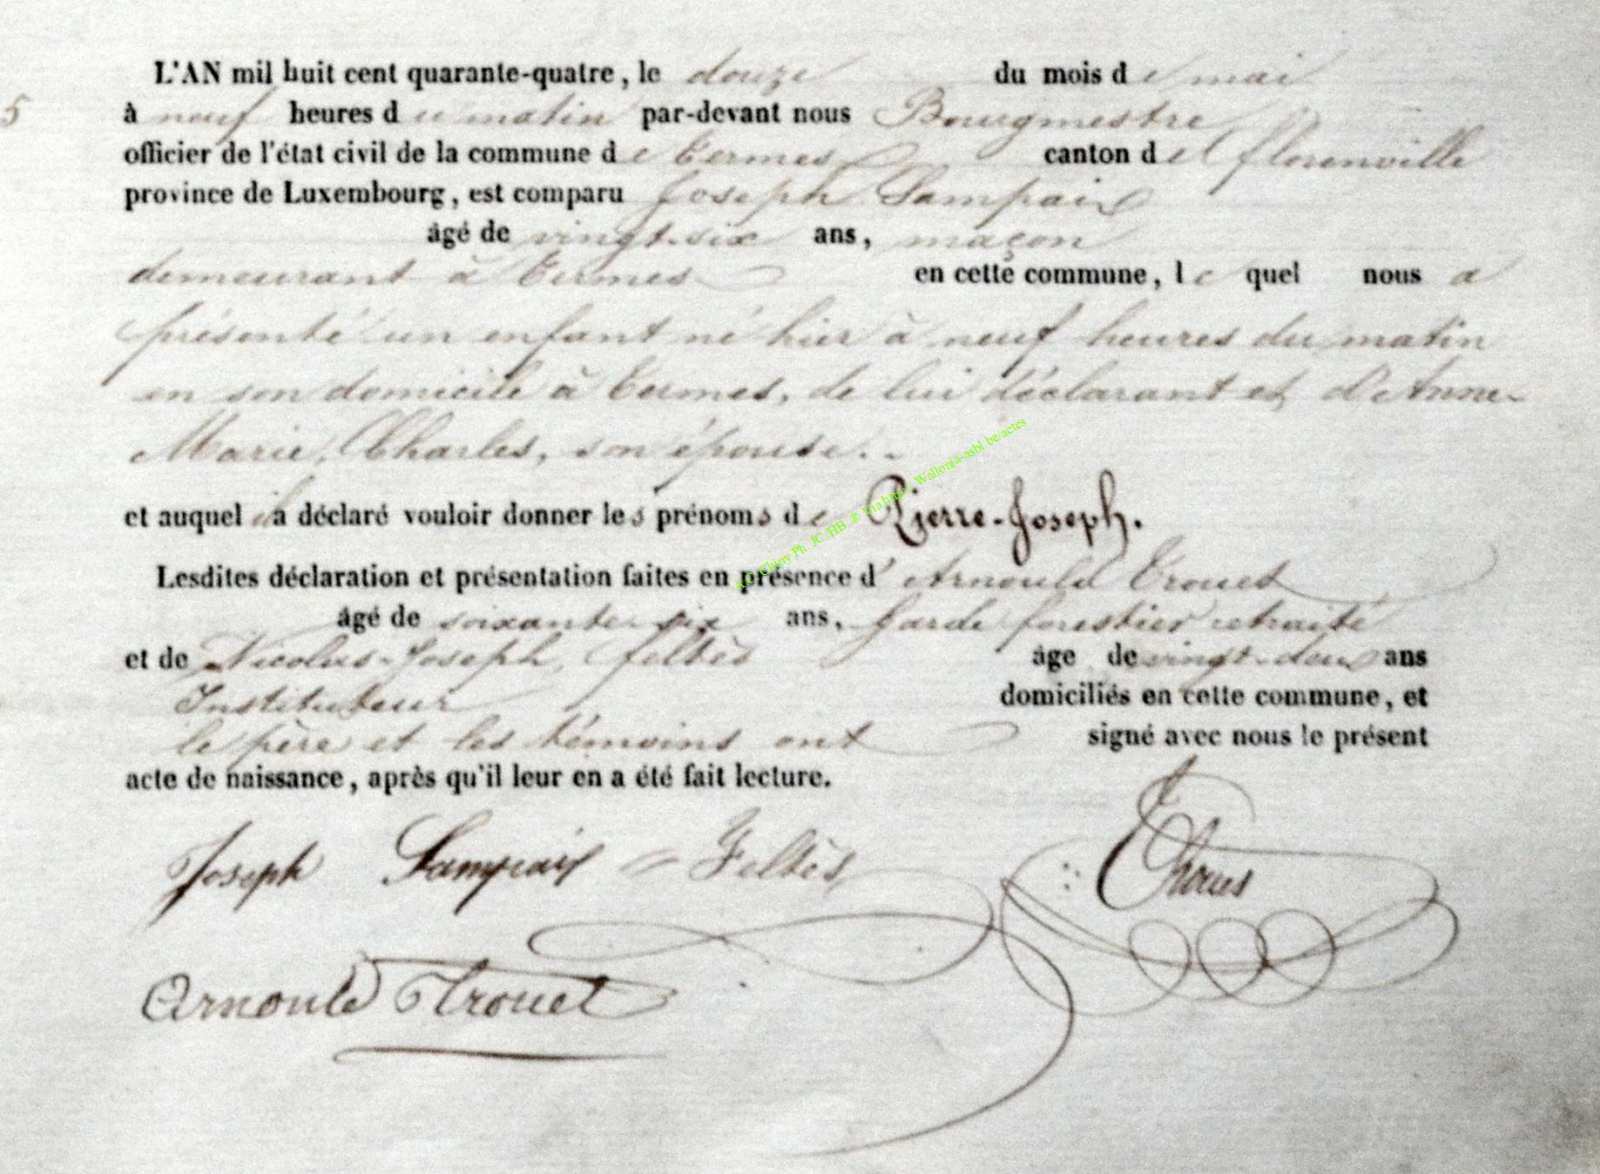 L'AN mil huit cent quarante-quatre, le douze du mois de mai
5 à neuf heures du matin par-devant nous Bourgmestre
officier de l'état civil de la commune de Termes canton de florenville
province de Luxembourg, est comparu Joseph Lampaix
âgé de vingt-six ans, maçon
demeurant à Termes en cette commune, lequel nous a
présenté un enfant né hier à neuf heures du matin
en son domicile à Termes, de lui déclarant et d'Anne-
Marie Charles, son épouse.
et auquel il a déclaré vouloir donner les prénoms de Pierre-Joseph.
Lesdites déclaration et présentation faites en présence d'Arnould Trouet
âgé de soixante six ans, garde forestier retraité
et de Nicolas-Joseph Feltès âge de vingt-deux ans
Instituteur domiciliés en cette commune, et
le père et les témoins ont signé avec nous le présent
acte de naissance, après qu'il leur en a été fait lecture.
Joseph Lampaix Feltès
Arnould Trouet